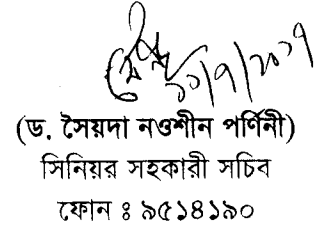 ১০/৭/২০১৭
(ড. সৈয়দা নওশীন পর্ণিনী)
সিনিয়র সহকারী সচিব
ফোন ঃ ৯৫১৪১৯০